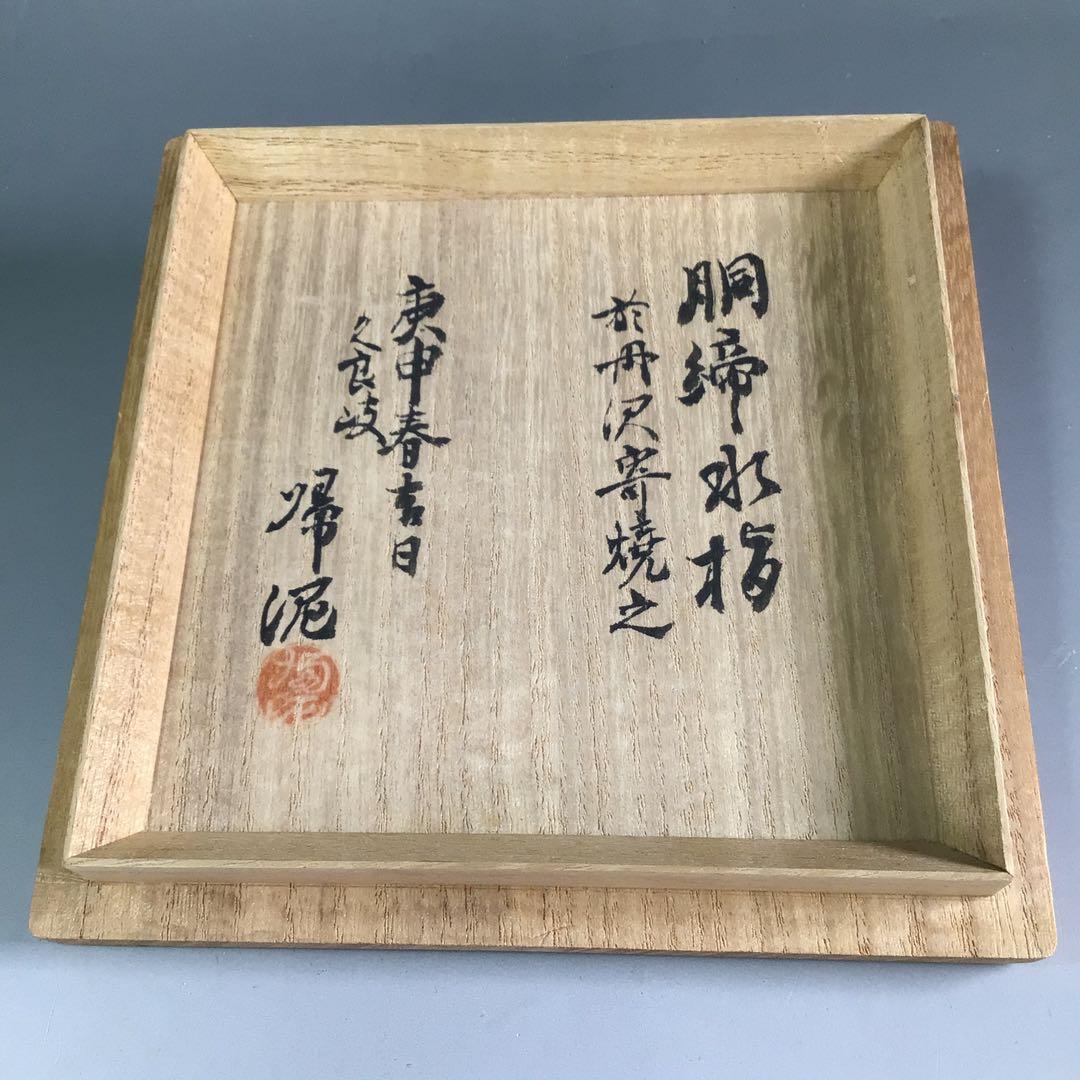 胴締水指
於丹沢寄焼之
庚申春吉日
久良岐
帰泥